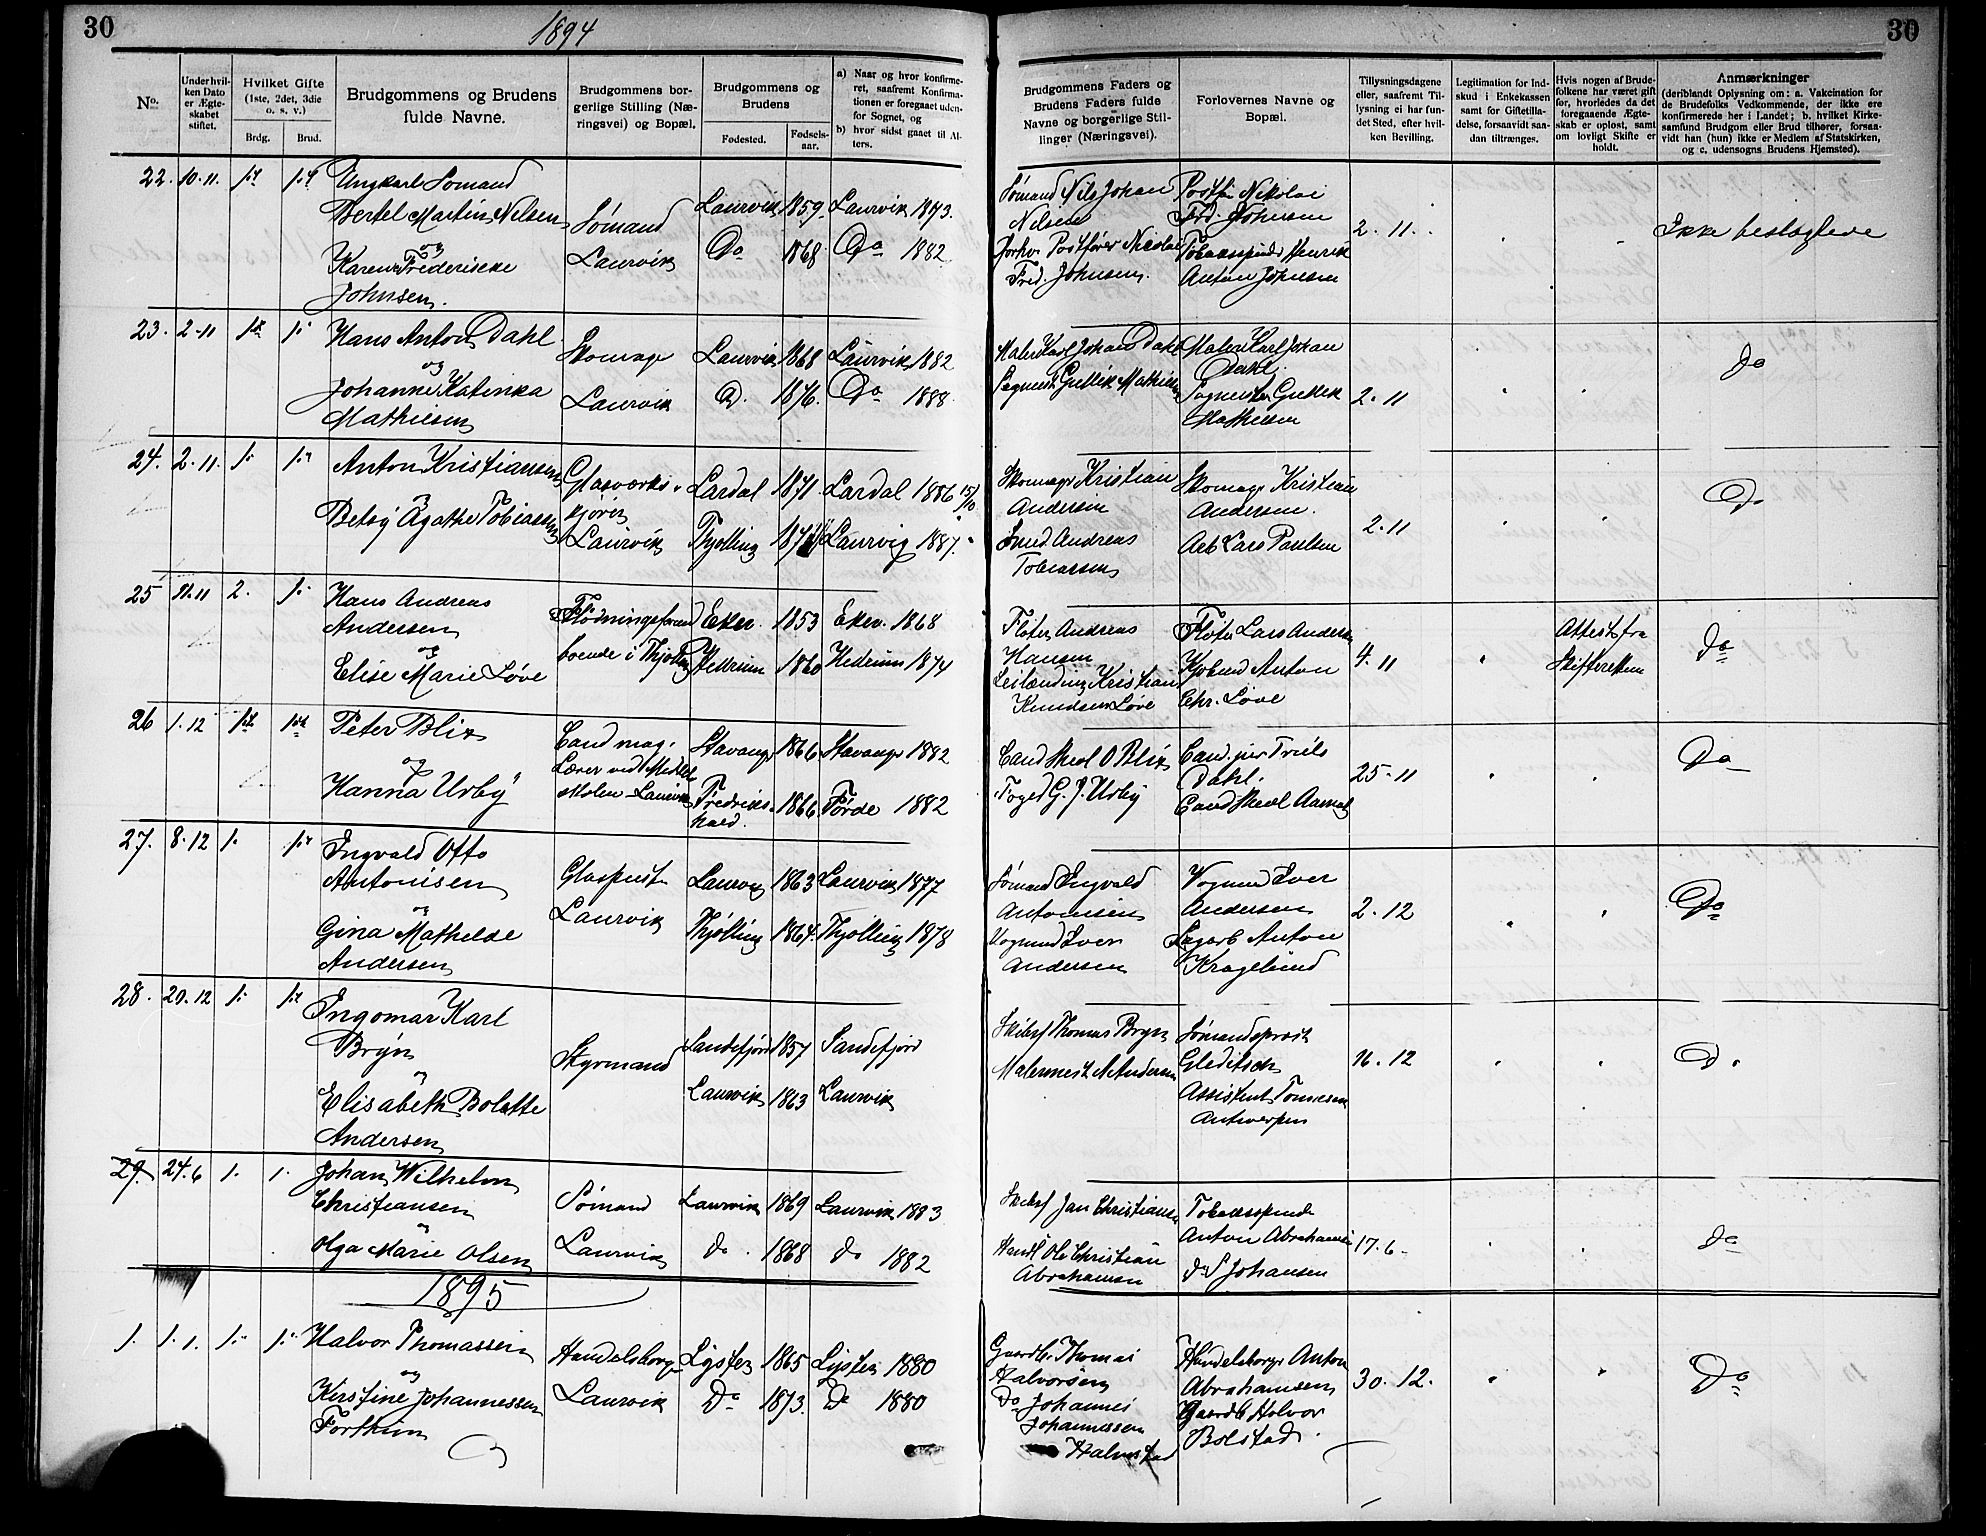 30
1894
30
No.
Under hvilken Dato er Ægteskabet stiftet.
Hvilket Gifte (1ste, 2det, 3die o. s. v.)
Brdg.
Brud.
Brudgommens og Brudens fulde Navne.
Brudgommens borgerlige Stilling (Næringsvei) og Bopæl.
Brudgommens og Brudens
Fødested.
Fødselsaar.
a) Naar og hvor konfirmeret, saafremt Konfirmationen er foregaaet udenfor Sognet, og
b) hvor sidst gaaet til Alters.
Brudgommens Faders og Brudens Faders fulde Navne og borgerlige Stillinger (Næringsvei).
Forlovernes Navne og Bopæl.
Tillysningsdagene eller, saafremt Tillysning ei har fundet Sted, efter hvilken Bevilling.
Legitimation for Indskud i Enkekassen samt for Giftetilladelse, forsaavidt saadan tiltrænges.
Hvis nogen af Brudefolkene har været gift før, hvorledes da det foregaaende Ægteskab er opløst, samt om lovligt Skifte er holdt.
Anmærkninger
(deriblandt Oplysning om: a. Vakcination for de Brudefolks Vedkommende, der ikke ere konfirmerede her i Landet; b. hvilket Kirkesamfund Brudgom eller Brud tilhører, forsaavidt han (hun) ikke er Medlem af Statskirken, og c. udensogns Brudens Hjemsted).
22. 10.11. Ungkarl Sømand
Bertel Martin Nilsen
og
Karen Frederikke
Johnsen.
Sømand
Laurvik
Laurvik 1859. Laurvik 1873.
Do 1868 Do 1882
Sømand Nils Johan
Nilsen
Postfører Nicolai
Fred. Johnsen.
Nikolai
Frd. Johnsen
Henrik
Anton Johnsen
2. 11.
Ikke beslægtede
23. 2-11 Hans Anton Dahl
og
Johanne Katinka
Mathisen
Skomager
Laurvik
Laurvik 1868 Laurvik 1882
D. 1876. Do 1888.
Maler Karl Johan Dahl
Gullik Mathisen
Maler Karl Johan
Dahl.
Gullik
Mathisen
2. 11
do
24. 2. 11. Anton Kristiansen
Betsy Agathe Tobiassen
Glasværks-
kjører
Laurvik
Lardal 1871 Lardal 1886 15/10
Thjølling Laurvig 1887.
Skomager Kristian
Andersen
Smed Andreas
Tobiassen
Skomager Kristian
Andersen.
Arb Lars Paulsen
2. 11
Do
25 11.11 2. 1. Hans Andreas
Andersen
og
Elise Marie Løve
Flødningsformand
boende i Thjølling
Eker. 1853 Eker. 1868
Hedrum 1860 Hedrum 1874
Fløter Andreas
Hansen
Leilænding Kristian
Knudsen Løve
Fløter Lars Andersen
Anton
Chr. Løve
4. 11
Attest fra
Skifteretten
do
26 1. 12 Peter Blix
og
Hanna Urby
Cand mag.
Lærer ved Middel
skolen - Laurvik
Stavanger 1866 Stavanger 1882
Fredriks-
hald. 1866 Førde 1882
Cand theol O Blix
Foged G. J. Urby
Cand. jur Truls
Dahl.
Cand theol
25-11
Do
27. 8. 12 1. Ingvald Otto
Antonisen
og
Gina Mathilde
Andersen
Glaspust
Laurvik
Laurvig 1863 Laurvik 1877
Thjølling 1864. Thjølling 1878
Sømand Ingvald
Antonisen
Vognmd Iver
Andersen
Vognmd Iver
Andersen
Anton
Kragelund
2. 12
Do
28. 20. 12 Ingomar Karl
Bryn
og
Elisabeth Bolette
Andersen
Styrmand
Sandefjord 1857 Sandefjord
Laurvik 1863 Laurvik
Skibsf Thomas Bryn
Malermest A Andersen
Sømandsprest
Gleditsch
Assistent
Antwerpen
16. 12
D.
29. 24. 6 1. 1. Johan Wilhelm
Christiansen
og
Olga Marie Olsen
Sømand
Laurvik
Laurvik 1869 Laurvik 1883
do. 1868 do 1882
Skibsf Jan Christiansen
Ole Christian
Abrahamsen
Tobaksspinder
Anton Abrahamsen
do S Johansen
17. 6-
do
1895
1. 1. 1. Halvor Thomassen
og
Kirstine Johannessen
Forthun
Handelsborger
Laurvik
Lyster 1865 Lyster 1880
Do 1873. Do 1880
Gaardbr. Thomas
Halvorsen
Do Johannes
Johannessen
Handelsborger Anton
Abrahamsen
Gaardb Halvor
Bolstad.
30. 12.
Do